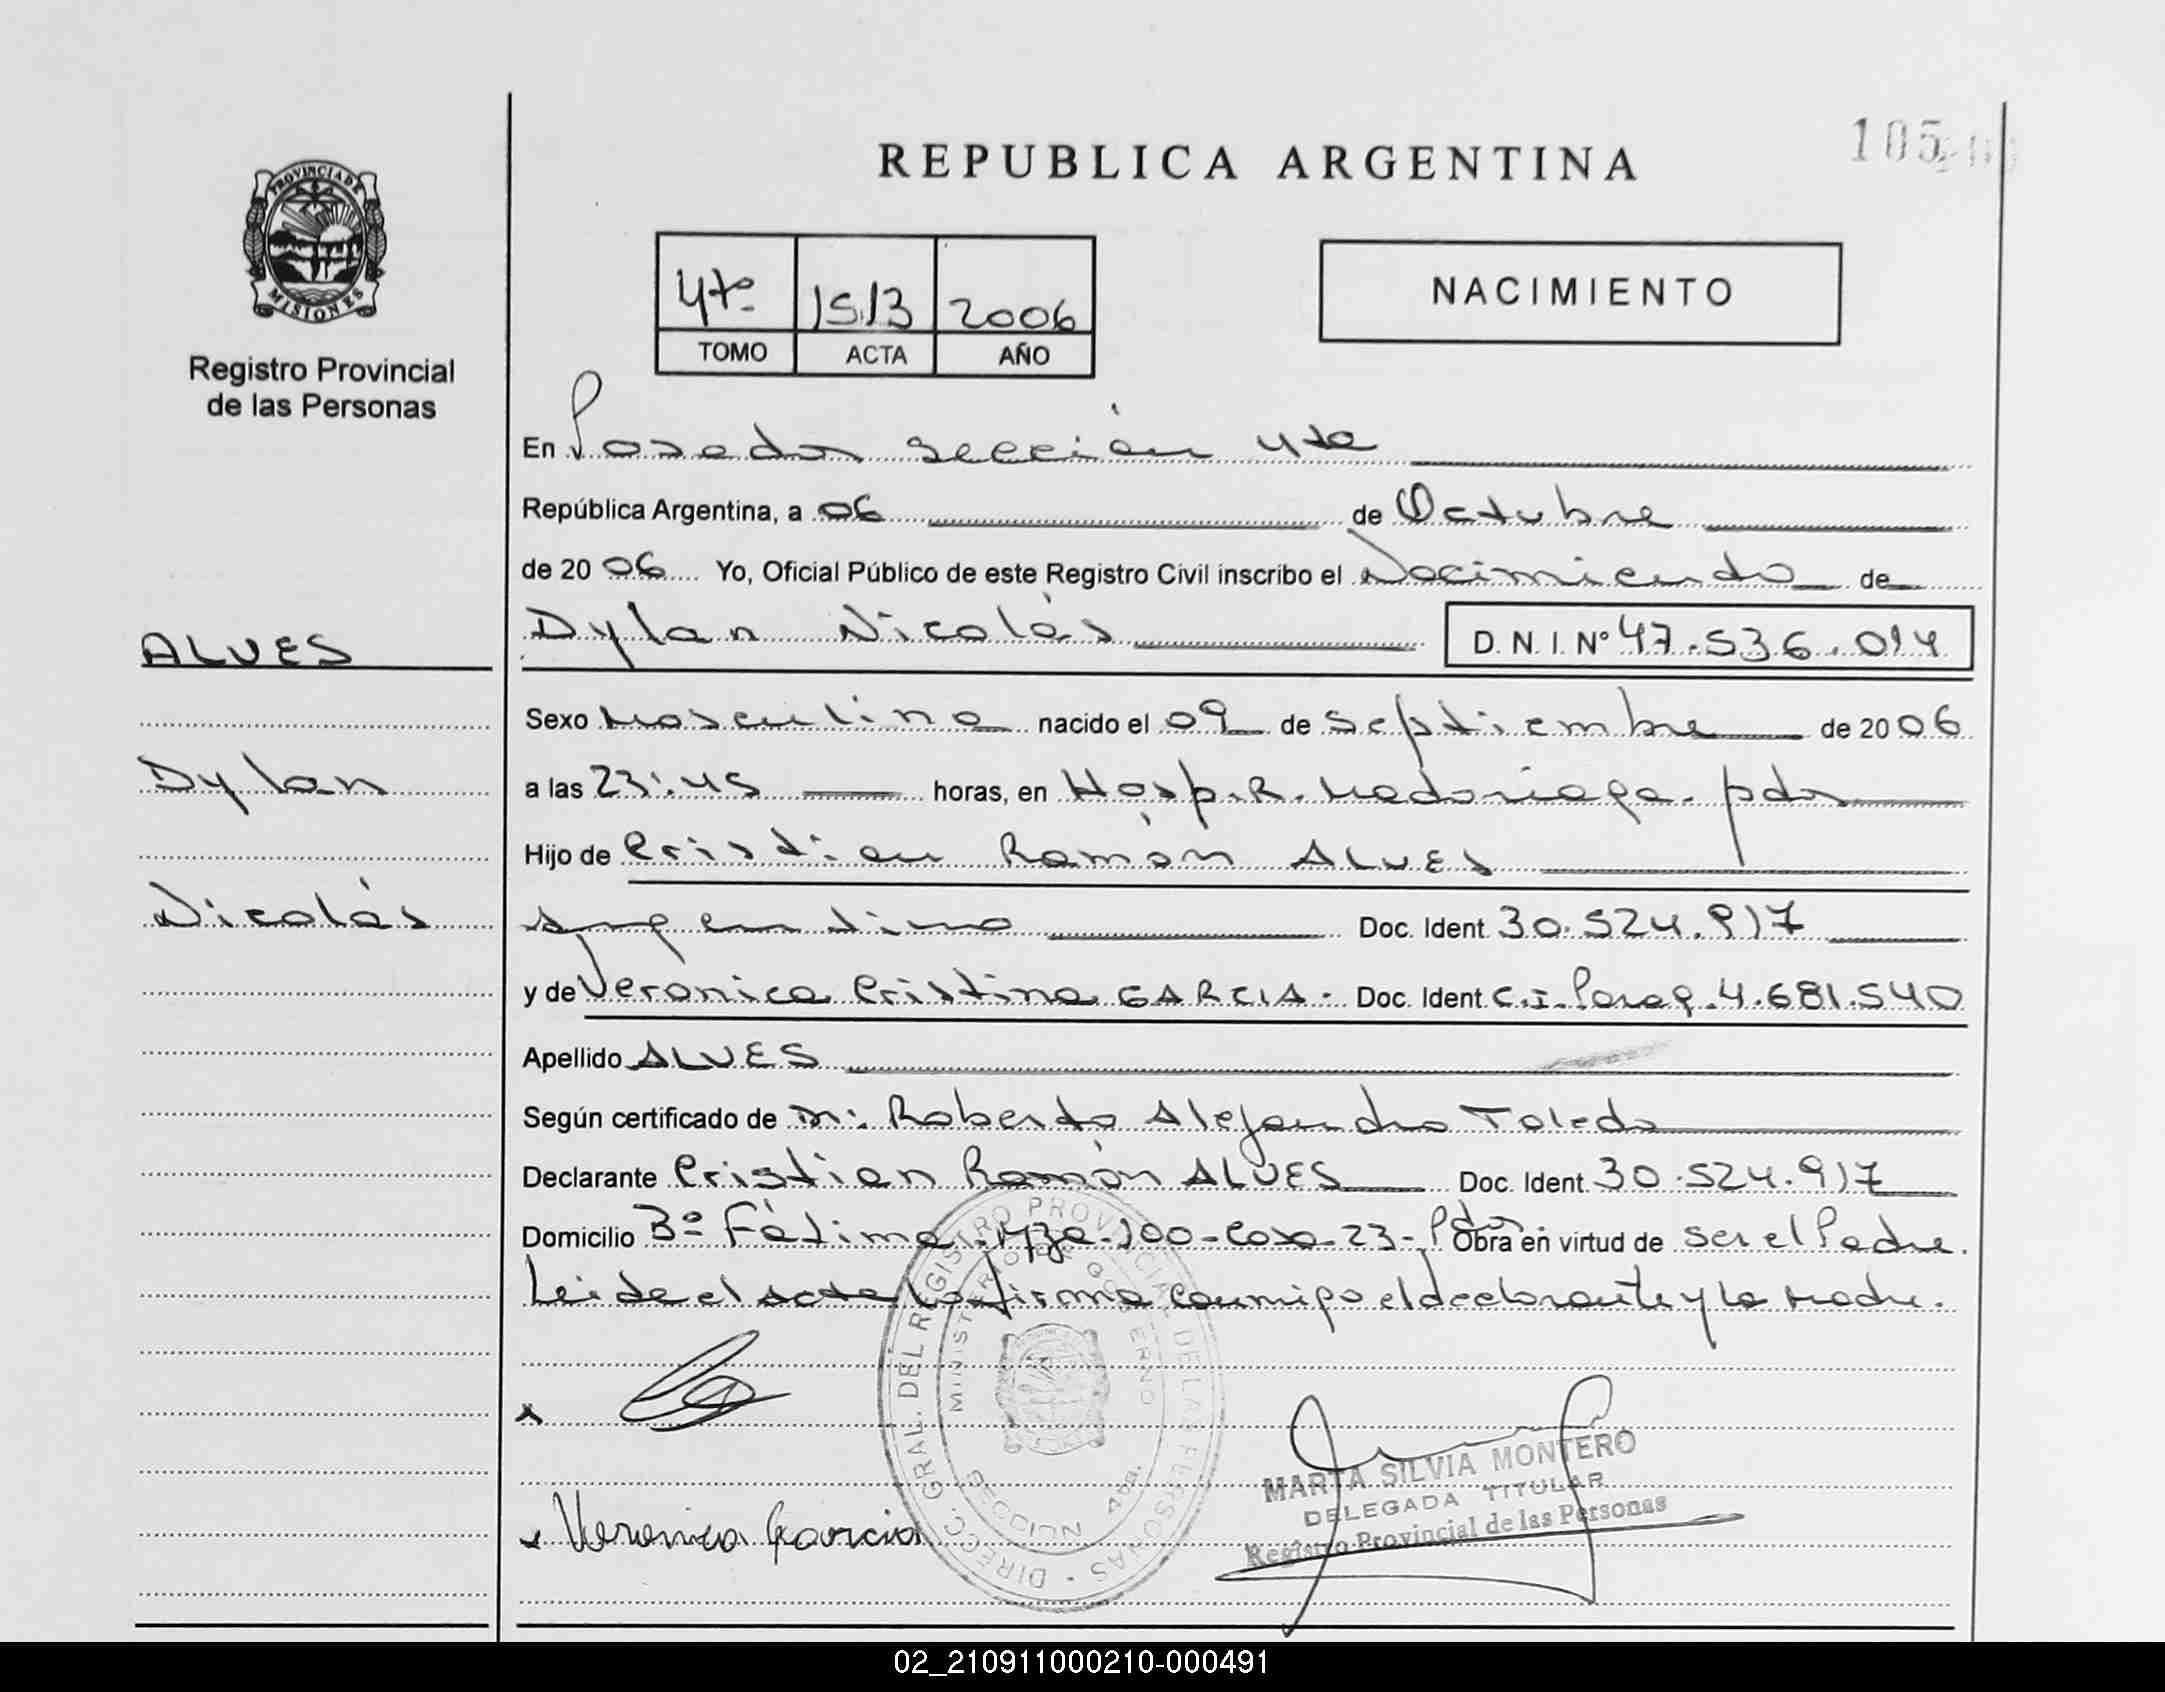 REPUBLICA ARGENTINA
105
PROVINCIA DE
MISIONES
Registro Provincial
de las Personas
4to 1513 2006
TOMO ACTA AÑO
NACIMIENTO
En Posadas sección 4ta
República Argentina, a 06 de Octubre
de 20 06 Yo, Oficial Público de este Registro Civil inscribo el Nacimiento de
Dylan Nicolás D. N. I. Nº 47.536.014
ALVES
Dylan
Nicolás
Sexo Masculino nacido el 09 de Septiembre de 20 06
a las 23:45 horas, en Hosp. R. Madariaga. pdas
Hijo de Cristian Ramón ALVES
Argentino Doc. Ident. 30.524.917
y de Veronica Cristina GARCIA. Doc. Ident. C.I. Parag. 4.681.540
Apellido ALVES
Según certificado de m: Roberto Alejandro Toledo
Declarante Cristian Ramón ALVES Doc. Ident. 30.524.917
Domicilio Bº Fátima. Mza. 100 - Casa 23 - Pdas Obra en virtud de ser el Padre.
Leida el acta la firma conmigo el declarante y la Madre.
DIREC. GRAL. DEL REGISTRO PROVINCIAL DE LAS PERSONAS
MINISTERIO DE GOBIERNO
MARTA SILVIA MONTERO
DELEGADA TITULAR
Registro Provincial de las Personas
x Veronica Garcia
02_210911000210-000491